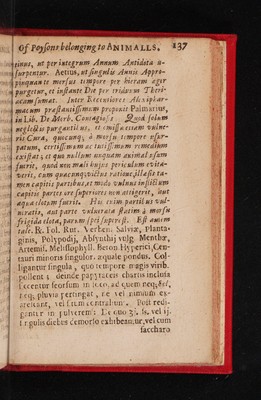 Of Poysons belonging to ANIMALLS. 137
einus, ut per integrum Annum Antidota u-
surpentur. Aetius, ut singulis Annis Appro-
pinquante morsus tempore per hieram æger
purgetur, et instante Die per triduum Theri-
acam sumat. Inter Recentiores Alexiphar-
macum præstantissimum proponit Palmarius,
in Lib. De Morb. Contagiosis: Quod solum
neglectis purgantibus, et omissa etiam vulne-
ris Cura, quocunq; à morsu tempore usur-
patum, certissimum ac tutissimum remedium
existat, et quo nullum unquam animal usum
fuerit, quod non mali hujus periculum evita-
verit, cum quacunq; victus ratione, illæsis ta-
men capitis partibus, et modo vulnus inflictum
capitis partes ore superiores non attigerit, aut
aqua elotum fuerit. Hac enim partibus vul-
neratis, aut parte vulnerata statim à morsu
frigida elota, parum spei superest. Est autem
tale. ℞. Fol. Rut. Verben. Salviæ, Planta-
ginis, Polypodij, Absynthij vulg. Menthæ,
Artemis. Melissophyll. Beton. Hyperici, Cen-
tauri minoris singulor. æquale pondus. Col-
ligantur singula, quo tempore magis virib.
pollent; deinde papyraceis chartis inclusa
siccentur seorsum in loco, ad quem neq; Sol,
neq; pluvia pertingat, ne vel nimium ex-
arescant, vel situm contrahant. Post redi-
gantur in pulverem: De quo ʒi. ſs. vel ij.
singulis diebus demorso exhibeantur, vel cum
saccharo